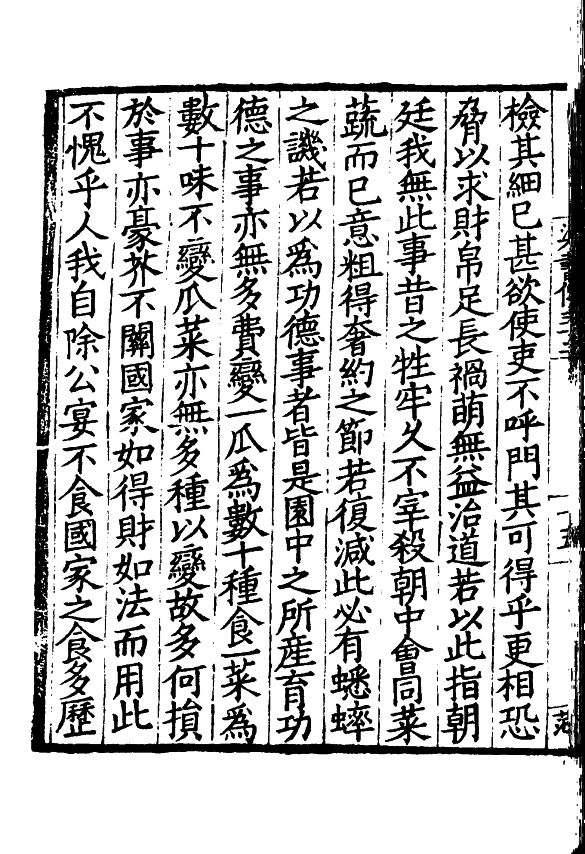 檢其細已甚欲使吏不呼門其可得乎更相恐
脅以求財帛足長禍萌無益治道若以此指朝
廷我無此事昔之牲牢久不宰殺朝中會同菜
蔬而已意粗得奢約之節若復減此必有蟋蟀
之譏若以爲功德事者皆是園中之所産育功
德之事亦無多費變一瓜爲數十種食一菜爲
數十味不變瓜菜亦無多種以變故多何損
於事亦豪芥不關國家如得財如法而用此
不愧乎人我自除公宴不食國家之食多歷